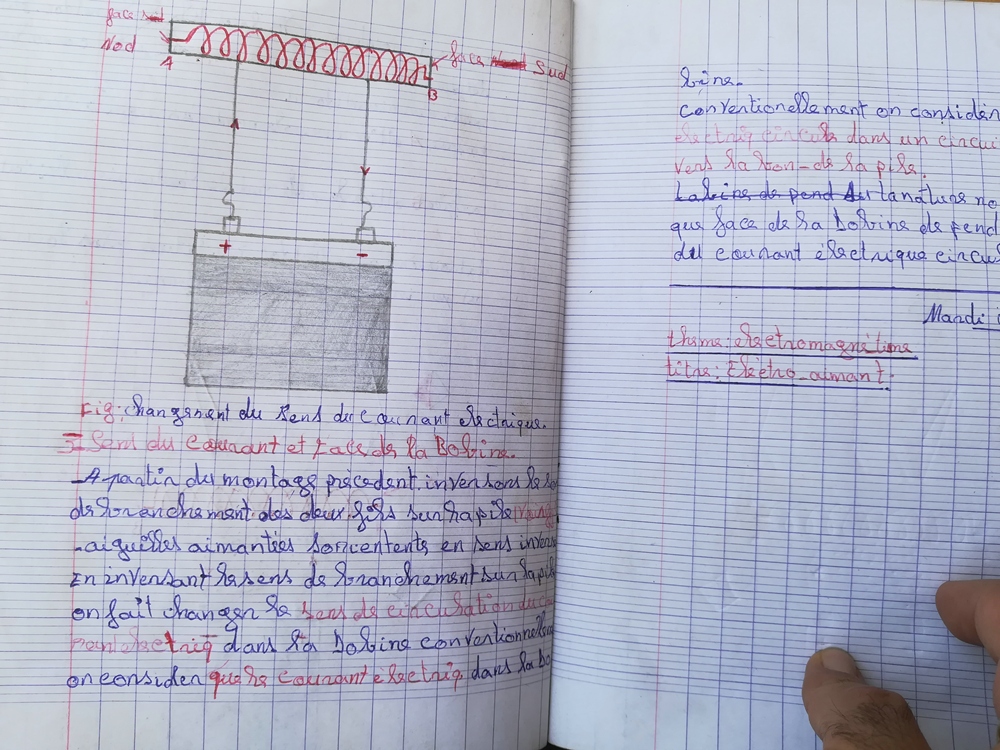 face
Nod
A
face Sud
B
+
-
Fig: changement du sens du courant electrique.
I- Sens du courant et face de la Bobine.
A partir du montage précedent, inversons le
de branchement des deux fils sur la pile
-aiguilles aimanties s'orientents en sens invers
En inversant le sens de branchement sur la pile
on fait changer le sens de circulation du
rant electriq dans la bobine conventionnelle
on consider que le courant électriq dans la bo
bine.
Conventionellement on considèr
electriq circule dans un circui
vers la bon- de la pile.
La bine de pend dur la nature no
que face de la bobine de pend
du courant électrique circu
Mardi
thème: Electromagnétime
titre: Electro-aimant.